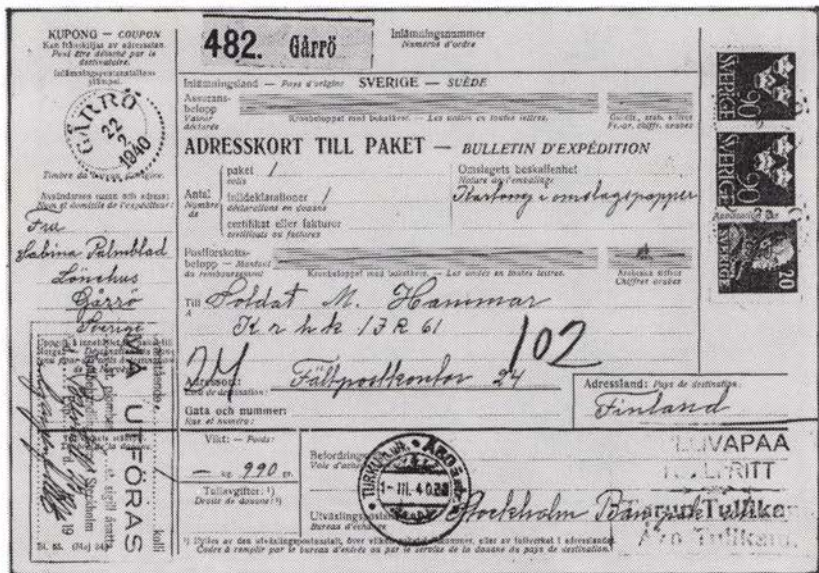 KUPONG — COUPON
Kan frånskiljas av adressaten.
Peut être détaché par le
destinataire.
Inlämningspostanstaltens
stämpel.
GÅRRÖ
22
2
1940
Timbre du bureau d'origine.
Avsändarens namn och adress:
Nom et domicile de l'expéditeur:
Fru
Sabina Palmblad
Lönehus
Gårrö
Sverige
MÅ UTFÖRAS
kolli
sigill åsatt
Stockholm
19
482. Gårrö
Inlämningsnummer
Numéros d'ordre
Inlämningsland — Pays d'origine SVERIGE — SUÈDE
Assurans-
belopp
Valeur
déclarée
Kronbeloppet med bokstäver. — Les unités en toutes lettres.
ADRESSKORT TILL PAKET — BULLETIN D'EXPÉDITION
Antal
Nombre
de
paket 1
colis
tulldeklarationer 1
déclarations en douane
certifikat eller fakturor
certificats ou factures
Omslagets beskaffenhet
Nature de l'emballage
Kartong i omslagspapper
Postförskotts-
belopp — Montant
du remboursement
Kronbeloppet med bokstäver. — Les unités en toutes lettres.
Arabiska siffror
Chiffres arabes
Till
A
Soldat M. Hammar
K r h k / J R 61
102
24
Adressort:
Lieu de destination:
Fältpostkontor 24
Adressland: Pays de destination:
Finland
Gata och nummer:
Rue et numéro:
Vikt: — Poids:
— kg. 990 gr.
Tullavgifter: ¹)
Droits de douane: ¹)
Befordringsväg
Voie d'acheminement
TURKU ÅBO
1-III. 40
Utväxlingspostanstalt
Bureau d'échange
Stockholm Bangpak
TULLIVAPAA
TULLFRITT
Turun Tullikam.
Åbo Tullkam.
¹) Ifylles av den utväxlingspostanstalt, över vilken paketet inkommer, eller av tullverket i adresslandet.
Cadre à remplir par le bureau d'entrée ou par le service de la douane du pays de destination.
SVERIGE
90
SVERIGE
90
SVERIGE
20